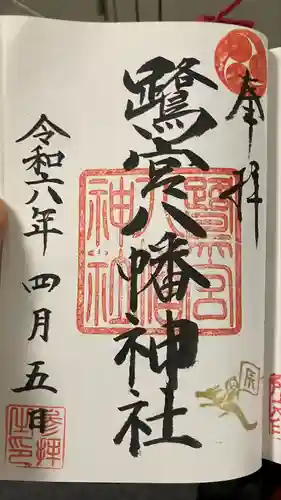 奉拝
鷺宮八幡神社
令和六年 四月五日
鷺宮
八幡
神社
辰
参拝